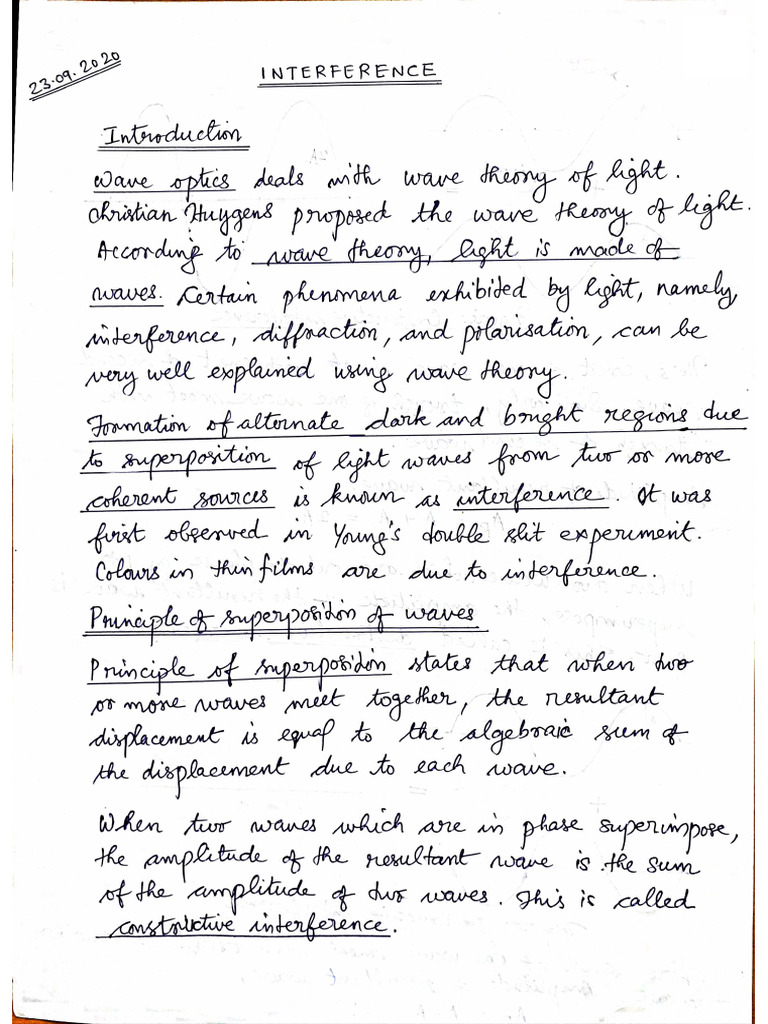 23.09.2020
INTERFERENCE
Introduction
Wave optics deals with wave theory of light.
Christian Huygens proposed the wave theory of light.
According to wave theory, light is made of
waves. Certain phenomena exhibited by light, namely,
interference, diffraction, and polarisation, can be
very well explained using wave theory.
Formation of alternate dark and bright regions due
to superposition of light waves from two or more
coherent sources is known as interference. It was
first observed in Young's double slit experiment.
Colours in thin films are due to interference.
Principle of superposition of waves
Principle of superposition states that when two
or more waves meet together, the resultant
displacement is equal to the algebraic sum of
the displacement due to each wave.
When two waves which are in phase superimpose,
the amplitude of the resultant wave is the sum
of the amplitude of two waves. This is called
constructive interference.